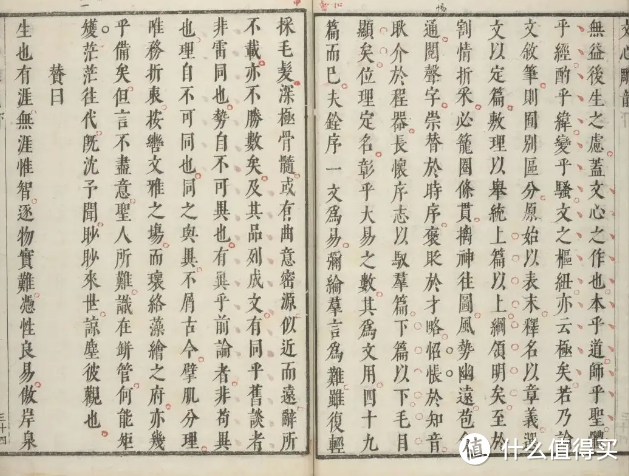 文心雕龍
無益後生之慮蓋文心之作也本乎道師乎聖體
乎經酌乎緯變乎騷文之樞紐亦云極矣若乃論
文敘筆則囿別區分原始以表末釋名以章義選
文以定篇敷理以舉統上篇以上綱領明矣至於
割情析采必籠圈條貫摛神往圖風勢幽遠苞會
通閱聲字崇替於時序褒貶於才略怊悵於知音
耿介於程器長懷序志以馭羣篇下篇以下毛目
顯矣位理定名彰乎大易之數其爲文用四十九
篇而已夫銓序一文爲易彌綸羣言爲難雖復輕
採毛髮深極骨髓或有曲意密源似近而遠辭所
不載亦不勝數矣及其品列成文有同乎舊談者
非雷同也勢自不可異也有異乎前論者非苟異
也理自不可同也同之與異不屑古今擘肌分理
唯務折衷按轡文雅之場而環絡藻繪之府亦幾
乎備矣但言不盡意聖人所難識在缾管何能矩
矱茫茫往代既沈予聞眇眇來世諒塵彼觀也
贊曰
生也有涯無涯惟智逐物實難憑性良易傲岸泉
三十四
值 什么值得买